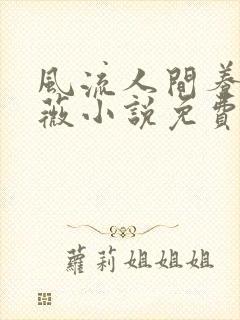 風流人間養
薇小說免費
蘿莉姐姐姐